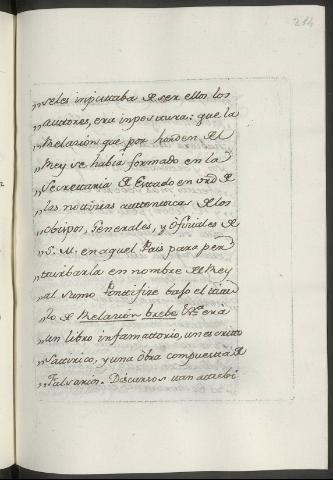 214
„seles imputtaba de ser ellos los
„auttores, era inpostura: que la
„Relazión que por horden del
„Rey se había formado en la
„Secrettaría de Estado en vrd. de
„las nottizias auttenticas de los
„obispos, Generales, y ofiziales de
„S. M. en aquel Pais para per
„turbarla en nombre del Rey
„al sumo Pontifize bajo el titu
„lo de Relazión brebe &ª era
„un libro infamattorio, un escritto
„Sattirico, y una obra compuesta de
„Falsarios. Discursos tan attrebi